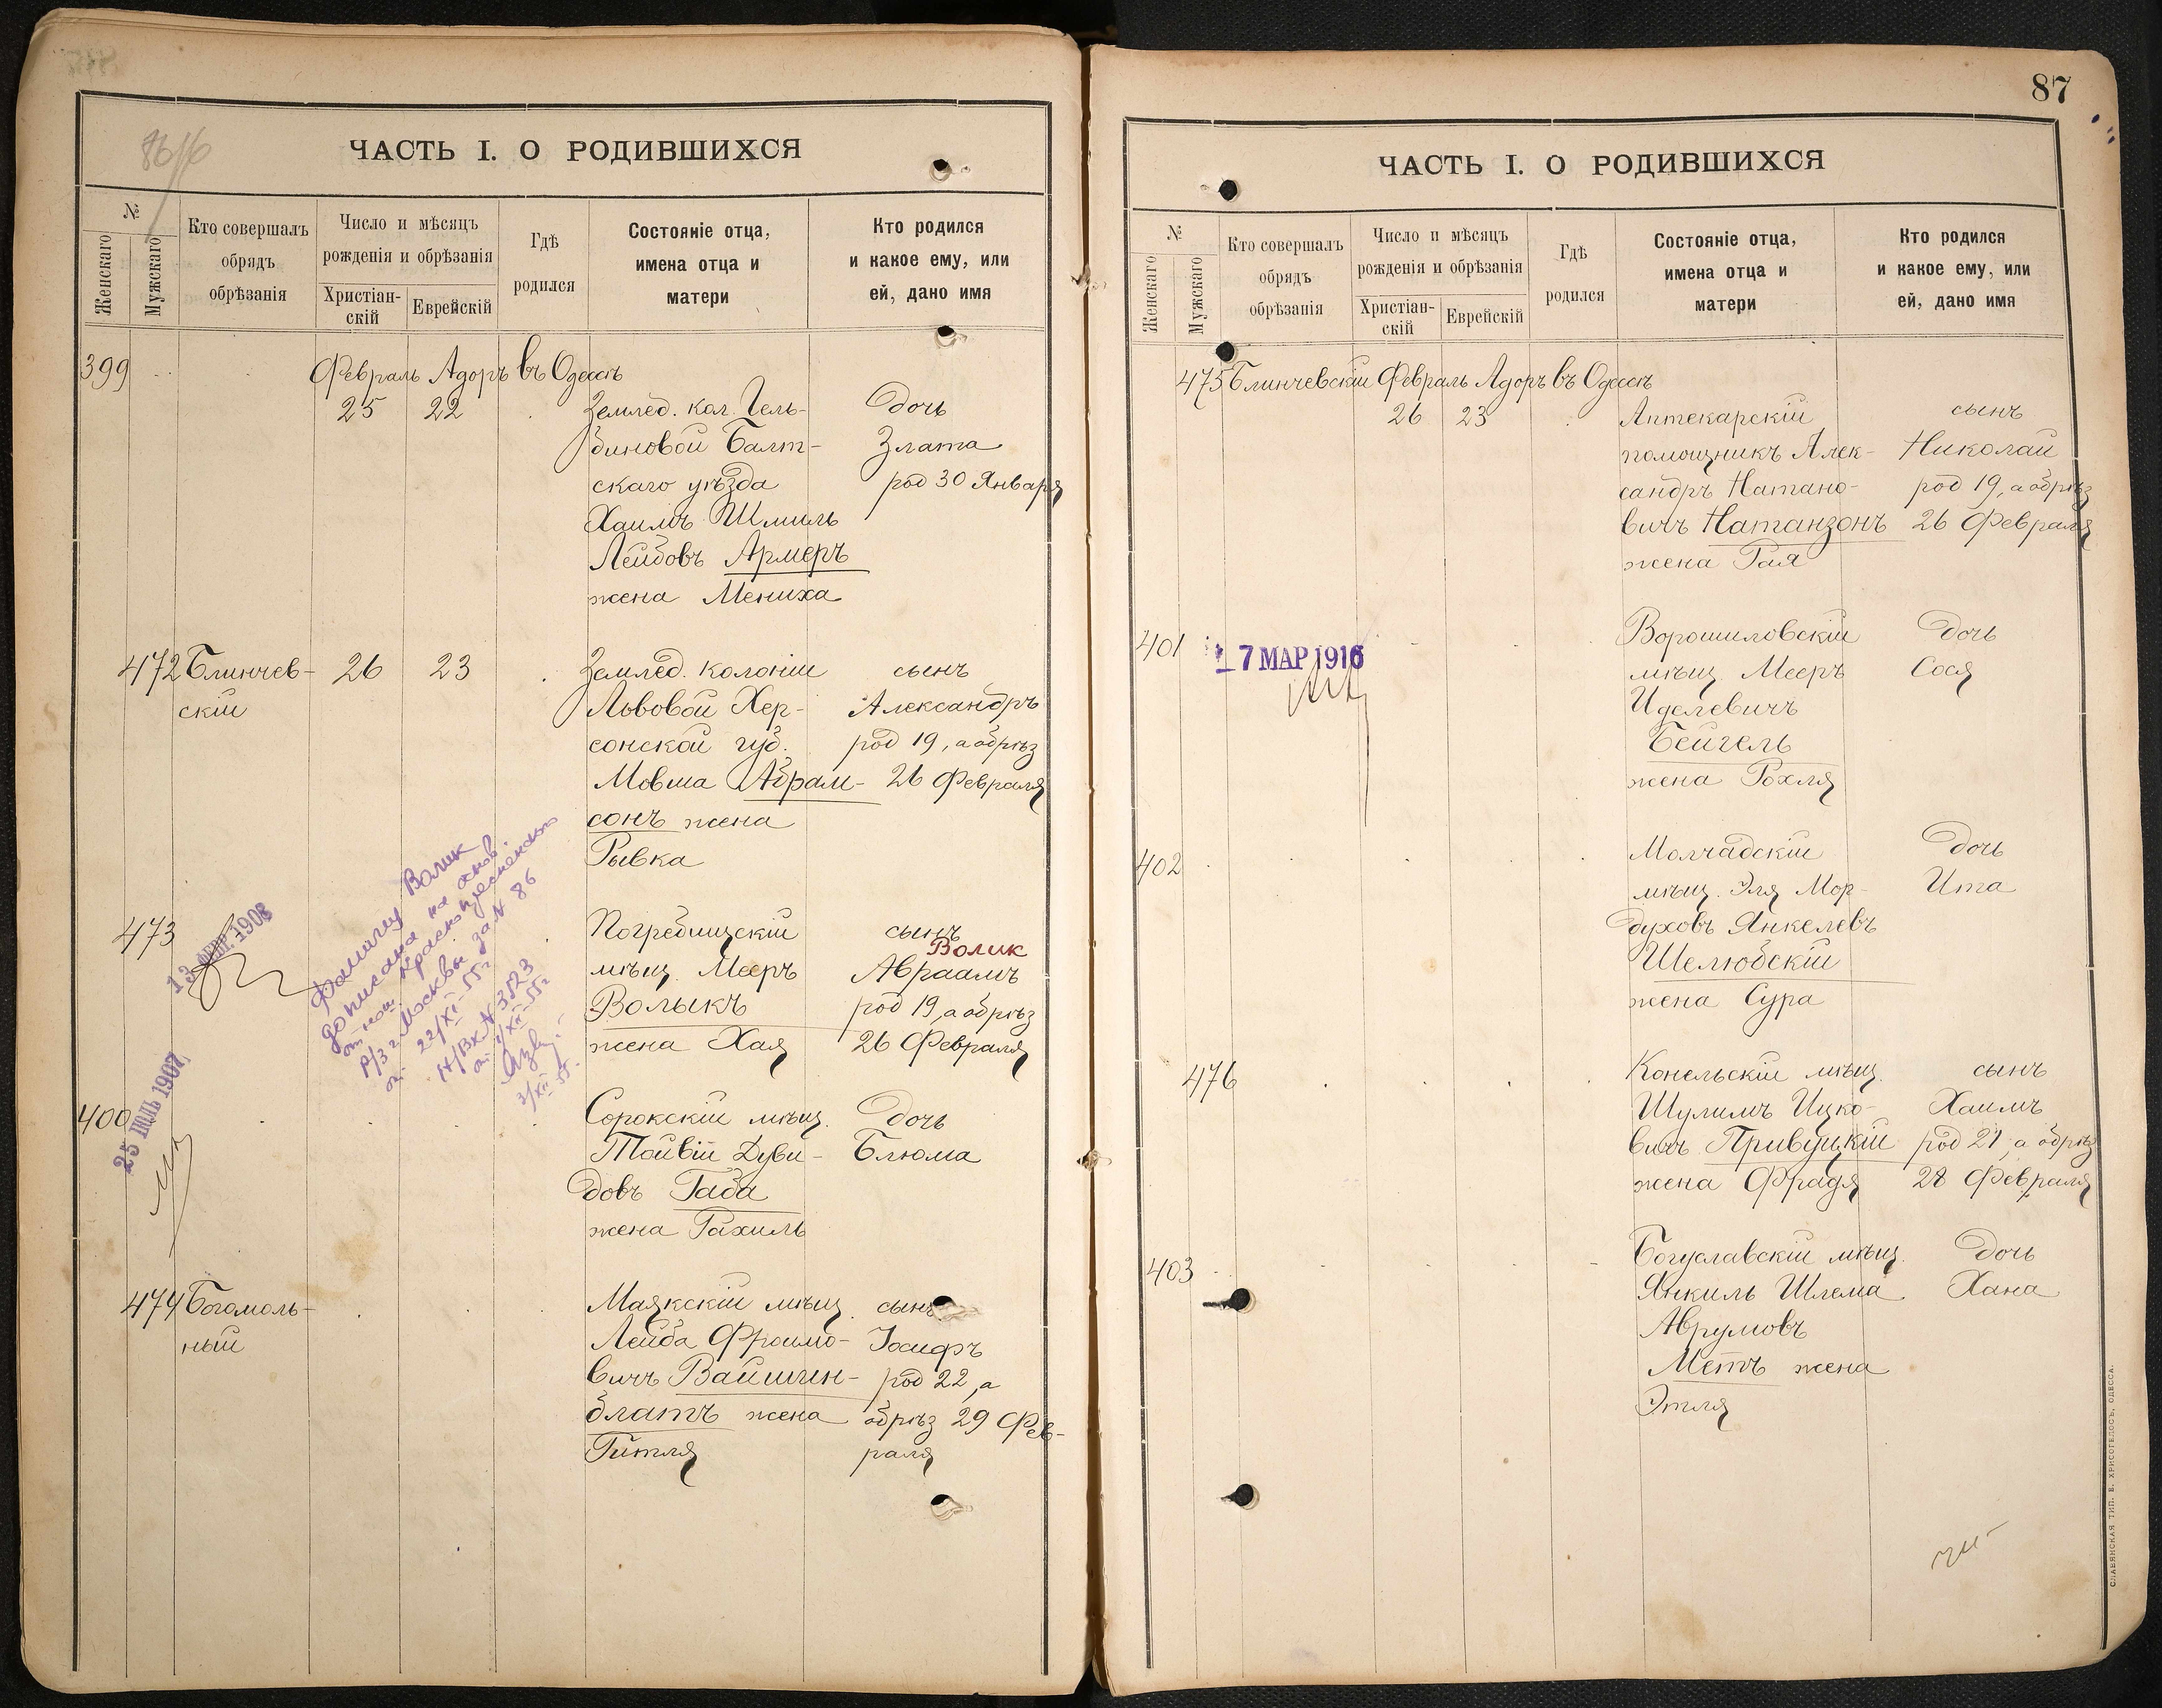 86/16
ЧАСТЬ I. О РОДИВШИХСЯ
№
Женскаго
Мужскаго
Кто совершалъ
обрядъ
обрѣзанія
Число и мѣсяцъ
рожденія и обрѣзанія
Христіан-
скій
Еврейскій
Гдѣ
родился
Состояніе отца,
имена отца и
матери
Кто родился
и какое ему, или
ей, дано имя
399 Февраль Адоръ въ Одессѣ
25 22 Землед. кол. Гель-
биновой Балт-
скаго уѣзда
Хаимъ Шмиль
Лейбовъ Армеръ
жена Мениха
дочь
Злата
род 30 Января
472 Блинчев-
скій
26 23
Землед. колоніи
Львовой Хер-
сонской губ.
Мовша Абрам-
сонъ жена
Рывка
сынъ
Александръ
род 19, а обрѣз
26 Февраля
473
13 1908
Фамилия Волик
дописана на основ.
от нот. Краснопресненского
Р/З г. Москвы за № 86
от 22/XI-55 г
Н/Вх № 3823
от 1/XII-55 г
3/XII 55 г.
Погребищскій
мѣщ. Мееръ
Волыкъ
жена Хая
сынъ
Волик
Авраамъ
род 19, а обрѣз
26 Февраля
400
25 ІЮЛЬ 1907
Сорокскій мѣщ.
Тойвій Дуви-
довъ Габа
жена Рахиль
дочь
Блюма
474 Богомоль-
ный
Маякскій мѣщ.
Лейба Фроимо-
вичъ Вайшин-
блатъ жена
Гитля
сынъ
Іосифъ
род 22, а
обрѣз 29 Фев-
раля
87
ЧАСТЬ I. О РОДИВШИХСЯ
№
Женскаго
Мужскаго
Кто совершалъ
обрядъ
обрѣзанія
Число и мѣсяцъ
рожденія и обрѣзанія
Христіан-
скій
Еврейскій
Гдѣ
родился
Состояніе отца,
имена отца и
матери
Кто родился
и какое ему, или
ей, дано имя
475 Блинчевскій Февраль Адоръ въ Одессѣ
26 23
Аптекарскій
помощникъ Алек-
сандръ Натано-
вичъ Натанзонъ
жена Рая
сынъ
Николай
род 19, а обрѣз
26 Февраля
401
7 МАР 1916
Ворошиловскій
мѣщ. Мееръ
Иделевичъ
Бейгель
жена Рохля
дочь
Сося
402
Молчадскій
мѣщ. Эля Мор-
духовъ Янкелевъ
Шелюбскій
жена Сура
дочь
Ита
476
Конельскій мѣщ.
Шулимъ Ицко-
вичъ Привуцкій
жена Фрадя
сынъ
Хаимъ
род 21, а обрѣз
28 Февраля
403
Богуславскій мѣщ.
Янкиль Шлема
Аврумовъ
Метъ жена
Этля
дочь
Хана
СЛАВЯНСКАЯ ТИП. Е. ХРИСОГЕЛОСЪ, ОДЕССА.